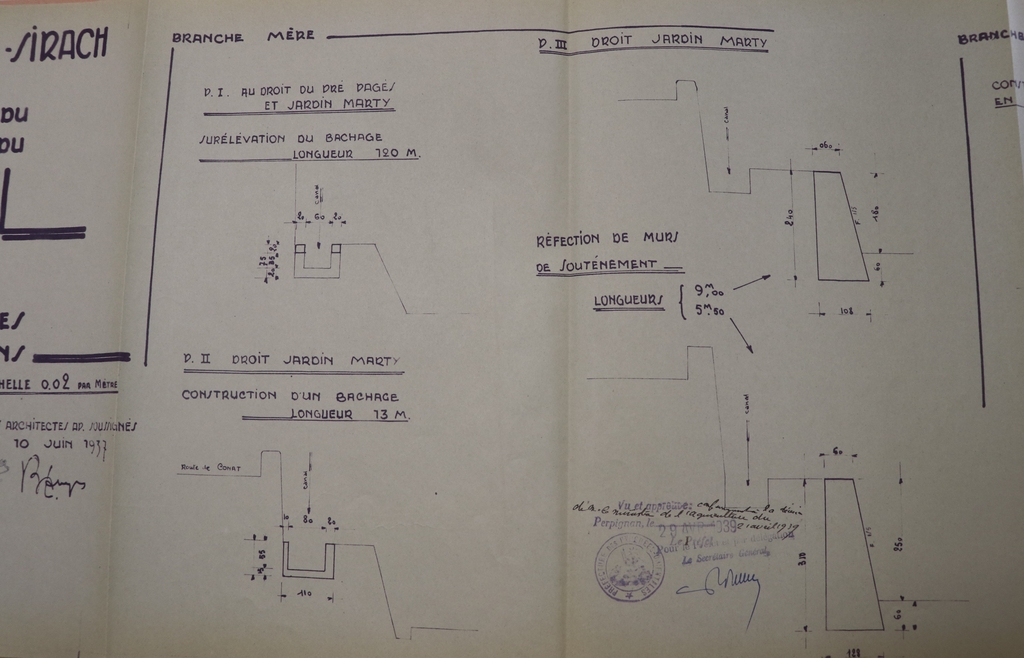 -SIRACH
DU
DU
L
ES
NS
HELLE 0,02 PAR MÈTRE
S ARCHITECTES AP. SOUSSIGNÉS
10 JUIN 1937
BRANCHE MÈRE
P. I. AU DROIT DU PRÉ PAGÈS
ET JARDIN MARTY
SURÉLÉVATION DU BACHAGE
LONGUEUR 120 M.
canal
20 60 20
P. II DROIT JARDIN MARTY
CONSTRUCTION D'UN BACHAGE
LONGUEUR 13 M.
Route de Conat
canal
80 20
15 55
110
P. III DROIT JARDIN MARTY
canal
060
240
F. 1/5
180
60
108
RÉFECTION DE MURS
DE SOUTÉNEMENT
LONGUEURS
9M,00
5M,50
canal
60
310
F. 1/5
250
60
128
Vu et approuvé:
de M. le ministre de l'agriculture du
Perpignan, le
21 avril 1939
Le Préfet
Le Secrétaire Général,
BRANCHE
CONS
EN